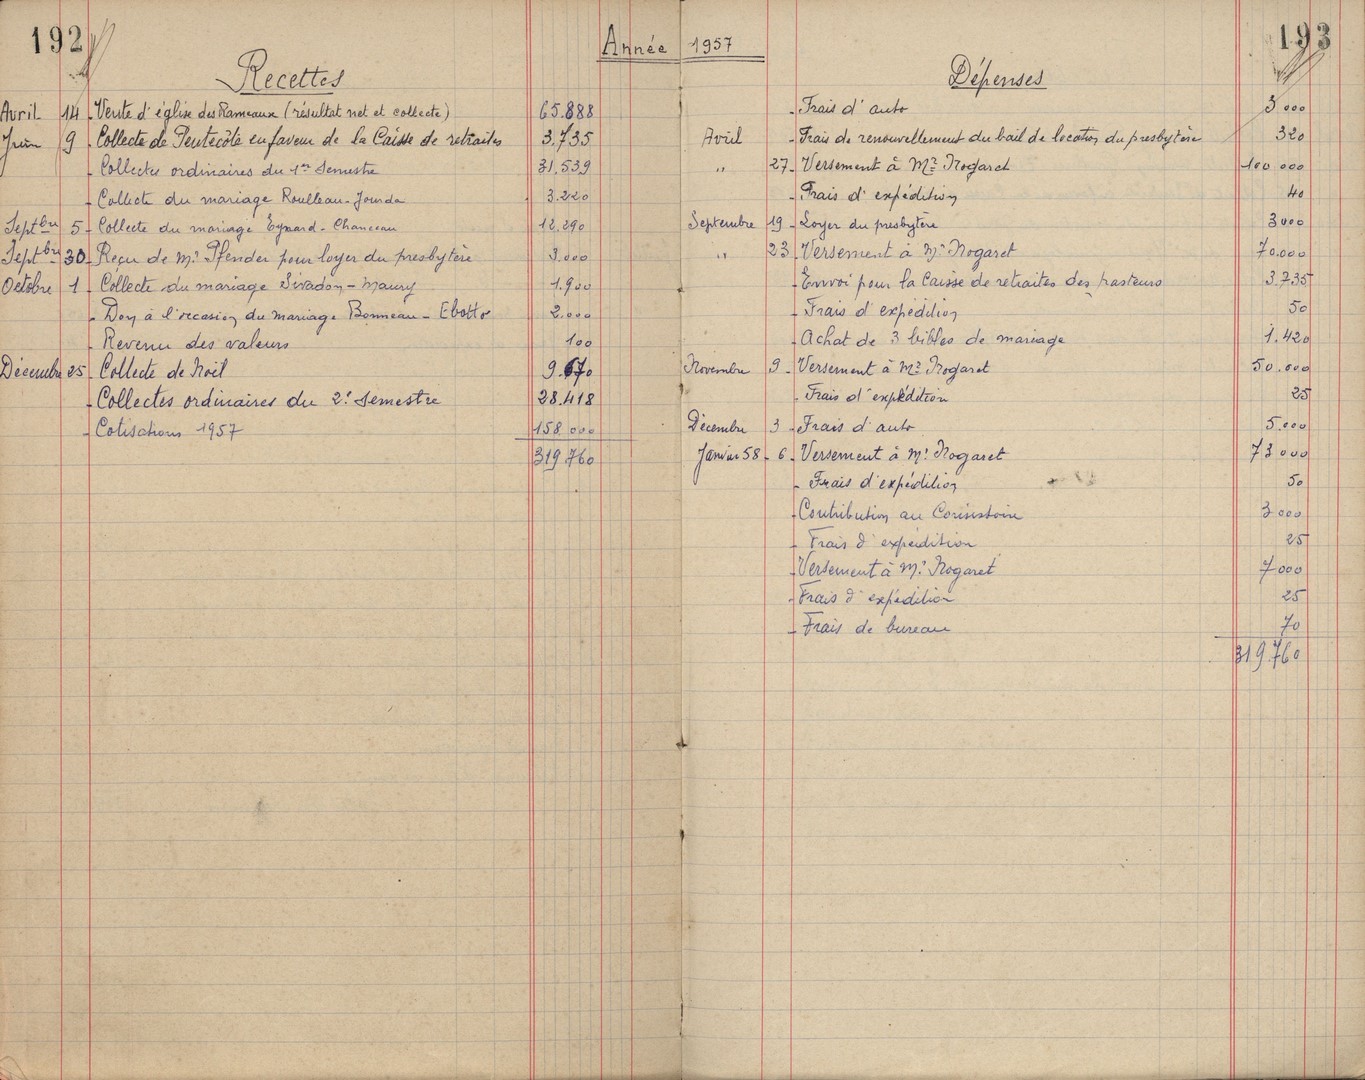 192
Année 1957
193
Recettes
Avril 14 - Vente d'église des Rameaux (résultat net et collecte) 65.888
Juin 9 - Collecte de Pentecôte en faveur de la Caisse de retraites 3.735
- Collectes ordinaires du 1er Semestre 31.539
- Collecte du mariage Roulleau-Jourda 3.220
Septbre 5 - Collecte du mariage Eynard-Chanceau 12.290
Septbre 30 - Reçu de Mr Pfender pour loyer du presbytère 3.000
Octobre 1 - Collecte du mariage Sivadon-Maury 1.900
- Don à l'occasion du mariage Bonneau - 2.000
- Revenu des valeurs 100
Décembre 25 - Collecte de Noël 9.670
- Collectes ordinaires du 2e Semestre 28.418
- Cotisations 1957 158.000
319 760
Dépenses
- Frais d'auto 3 000
Avril - Frais de renouvellement du bail de location du presbytère 320
" 27 - Versement à Mr Nogaret 100 000
- Frais d'expédition 40
Septembre 19 - Loyer du presbytère 3000
" 23 - Versement à Mr Nogaret 70.000
- Envoi pour la Caisse de retraites des pasteurs 3.735
- Frais d'expédition 50
- Achat de 3 bibles de mariage 1.420
Novembre 9 - Versement à Mr Nogaret 50.000
- Frais d'expédition 25
Décembre 3 - Frais d'auto 5.000
Janvier 58 - 6 - Versement à Mr Nogaret 73 000
- Frais d'expédition 50
- Contribution au Consistoire 3 000
- Frais d'expédition 25
- Versement à Mr Nogaret 7 000
- Frais d'expédition 25
- Frais de bureau 70
319.760